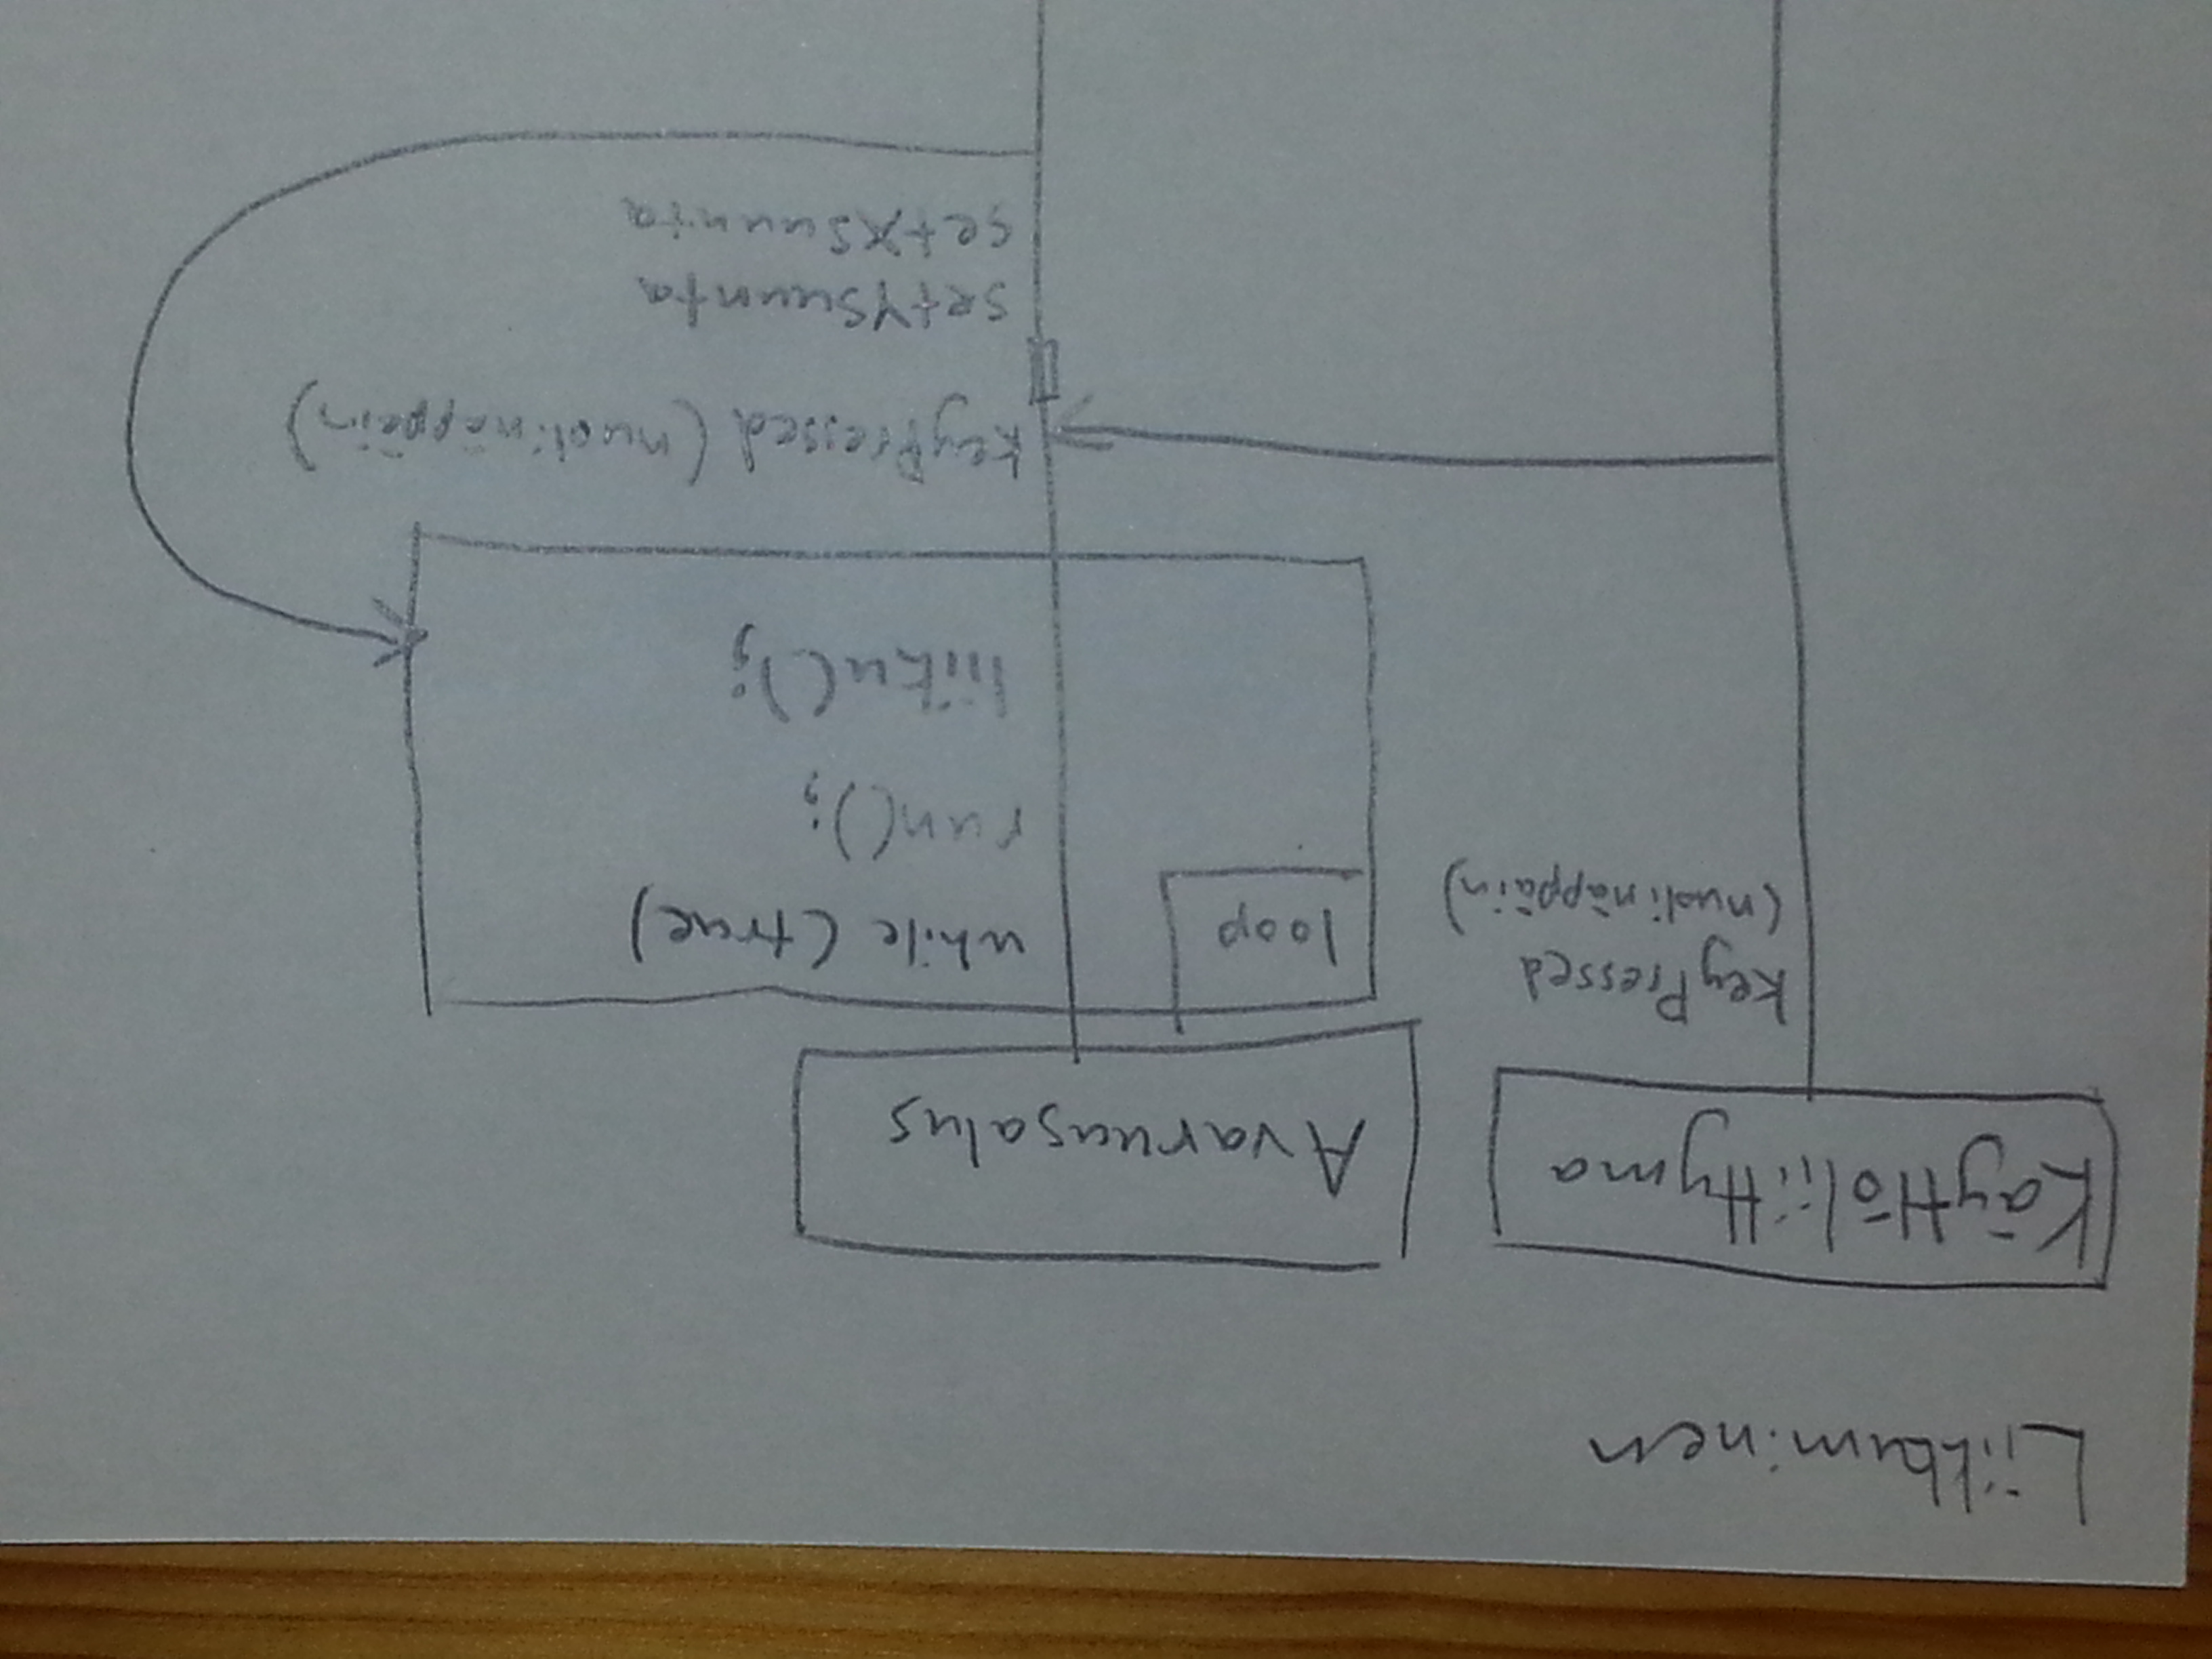 Liikkuminen
Käyttöliittyma
Avaruusalus
keyPressed
(nuolinäppäin)
loop
while (true)
run();
liiku();
keyPressed (nuolinäppäin)
setYSuunta
setXSuunta